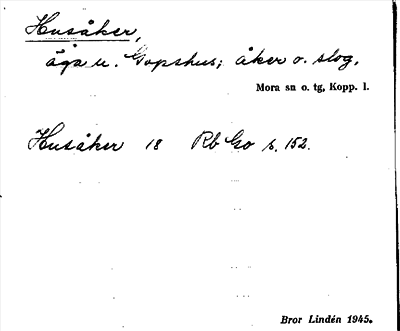 Husåker,
äga u. Gopshus; åker o. slog.
Mora sn o. tg, Kopp. l.
Husåker 18 Rb Go s. 152.
Bror Lindén 1945.